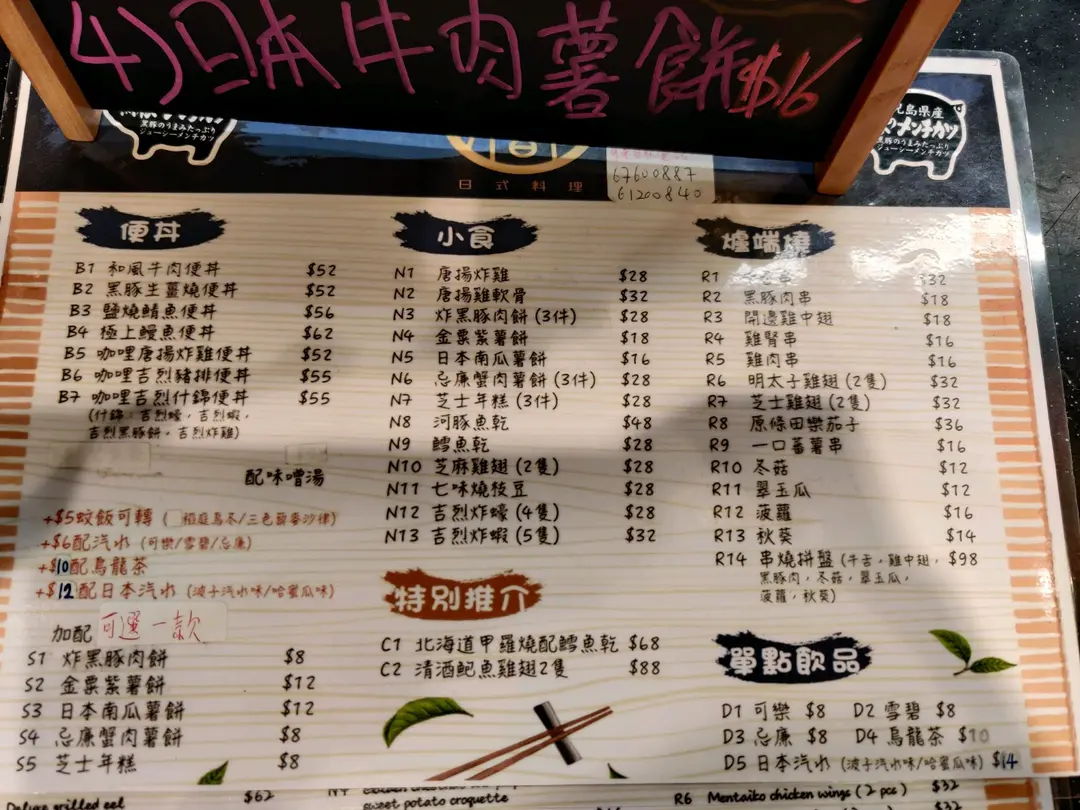 4)日本牛肉薯餅$16
黒豚のうまみたっぷり
ジューシーメンチカツ
日式料理
67600887
61200840
児島県産
メンチカツ
黒豚のうまみたっぷり
ジューシーメンチカツ
便丼
B1 和風牛肉便丼 $52
B2 黑豚生薑燒便丼 $52
B3 鹽燒鯖魚便丼 $56
B4 極上鰻魚便丼 $62
B5 咖哩唐揚炸雞便丼 $52
B6 咖哩吉烈豬排便丼 $55
B7 咖哩吉烈什錦便丼 $55
(什錦：吉烈蠔，吉烈蝦，
吉烈黑豚餅，吉烈炸雞)
配味噌湯
+$5蛟飯可轉 (稻庭烏冬/三色蕎麥沙律)
+$6配汽水 (可樂/雪碧/忌廉)
+$10配烏龍茶
+$12配日本汽水 (波子汽水味/哈蜜瓜味)
加配 可選一款
S1 炸黑豚肉餅 $8
S2 金粟紫薯餅 $12
S3 日本南瓜薯餅 $12
S4 忌廉蟹肉薯餅 $8
S5 芝士年糕 $8
小食
N1 唐揚炸雞 $28
N2 唐揚雞軟骨 $32
N3 炸黑豚肉餅 (3件) $28
N4 金粟紫薯餅 $18
N5 日本南瓜薯餅 $16
N6 忌廉蟹肉薯餅 (3件) $28
N7 芝士年糕 (3件) $28
N8 河豚魚乾 $48
N9 鱈魚乾 $28
N10 芝麻雞翅 (2隻) $28
N11 七味燒枝豆 $28
N12 吉烈炸蠔 (4隻) $28
N13 吉烈炸蝦 (5隻) $32
特別推介
C1 北海道甲羅燒配鱈魚乾 $68
C2 清酒鮑魚雞翅2隻 $88
爐端燒
R1 $32
R2 黑豚肉串 $18
R3 開邊雞中翅 $18
R4 雞腎串 $16
R5 雞肉串 $16
R6 明太子雞翅 (2隻) $32
R7 芝士雞翅 (2隻) $32
R8 原條田樂茄子 $36
R9 一口蕃薯串 $16
R10 冬菇 $12
R11 翠玉瓜 $12
R12 菠蘿 $16
R13 秋葵 $14
R14 串燒拼盤 (牛舌，雞中翅， $98
黑豚肉，冬菇，翠玉瓜，
菠蘿，秋葵)
單點飲品
D1 可樂 $8 D2 雪碧 $8
D3 忌廉 $8 D4 烏龍茶 $10
D5 日本汽水 (波子汽水味/哈蜜瓜味) $14
Deluxe grilled eel $62
sweet potato croquette
R6 Mentaiko chicken wings (2 pcs) $32